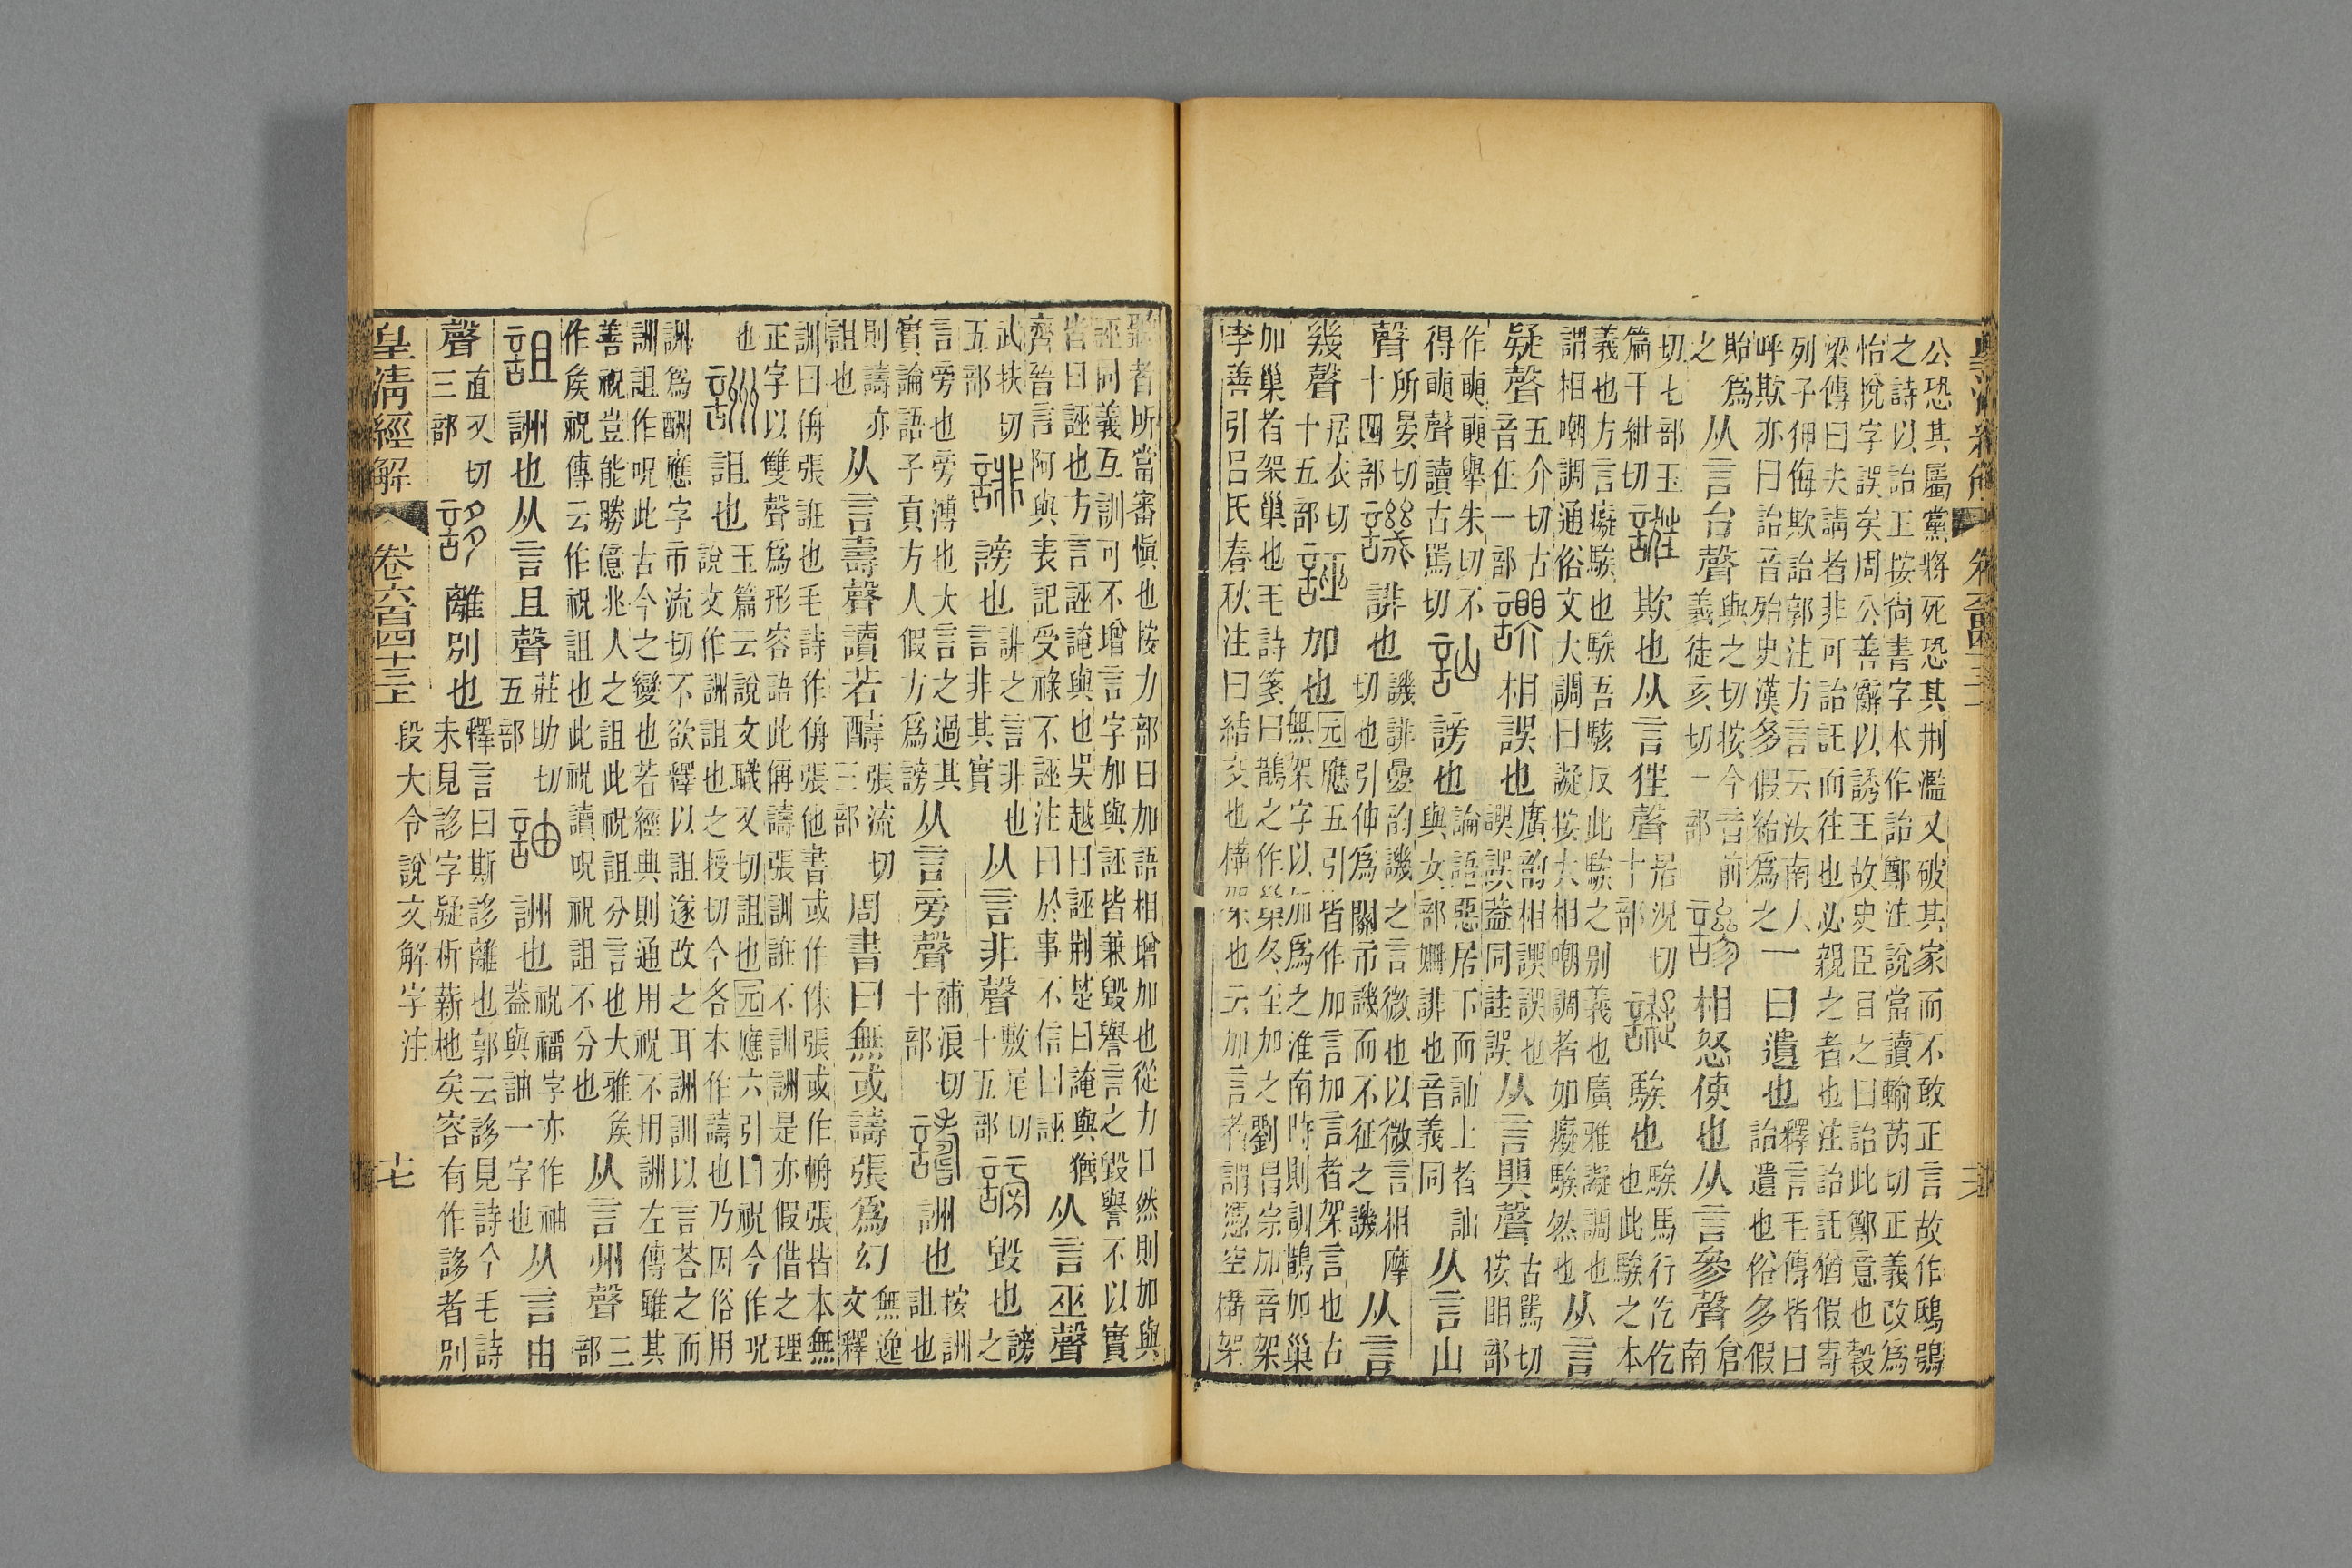 公恐其屬黨將死恐其刑濫又破其家而不敢正言故作鴟鴞
之詩以詒王按尚書字本作詒鄭注說當讀輸芮切正義改爲
怡悅字誤矣周公善辭以誘王故史臣目之曰詒此鄭意也穀
梁傳曰夫請者非可詒託而往也必親之者也注詒託猶假寄
列子狎侮欺詒郭注方言云汝南人
呼欺亦曰詒音殆史漢多假紿爲之一
曰遺也
釋言毛傳皆曰
詒遺也俗多假
貽爲
之
从言台聲
與之切按今音前
義徒亥切一部
謲相怒使也从言參聲
倉
南
切七部玉
篇千紺切
誑欺也从言狂聲
居況切
十部
譺騃也
騃馬行仡仡
也此騃之本
義也方言癡騃也騃吾駭反此騃之別義也廣雅譺調也
謂相嘲調通俗文大調曰譺按大相嘲調者如癡騃然也
从言
疑聲
五介切古
音在一部
相誤也
廣韵相誤誤也
誤誤蓋同詿誤
从言聲
古罵切
按䀠部
作奭奭舉朱切不
得奭聲讀古罵切
訕謗也
論語惡居下而訕上者訕
與女部姍誹也音義同
从言山
聲
所晏切
十四部
譏誹也
譏誹疊韵譏之言微也以微言相摩
切也引伸爲關市譏而不征之譏
从言
幾聲
居衣切
十五部
誣加也
元應五引皆作加言加言者架言也古
無架字以加爲之淮南時則訓鵲加巢
加巢者架巢也毛詩箋曰鵲之作巢冬至加之劉昌宗加音架
李善引呂氏春秋注曰結交也構架也云加言者謂憑空構架
聽者所當審愼也按力部曰加語相增加也從力口然則加與
誣同義互訓可不增言字加與誣皆兼毀譽言之毀譽不以實
皆曰誣也方言誣䛳與也吳越曰誣荆楚曰䛳與猶
齊晉言阿與表記受祿不誣注曰於事不信曰誣
从言巫聲
武扶切
五部
誹謗也
誹之言非也
言非其實
从言非聲
敷尾切
十五部
謗毀也
謗
之
言旁也旁溥也大言之過其
實論語子貢方人假方爲謗
从言旁聲
補浪切
十部
譸詶也
按詶
詛也
則譸亦
詛也
从言壽聲讀若醻
張流切
三部
周書曰無或譸張爲幻
無逸
文釋
訓曰侜張誑也毛詩作侜張他書或作侏張或作輈張皆本無
正字以雙聲爲形容語此偁譸張訓誑不訓詶是亦假借之理
也
詶詛也
玉篇云說文職又切詛也元應六引曰祝今作呪
說文作詶詛也之授切今各本作譸也乃因俗用
詶爲酬應字市流切不欲釋以詛遂改之耳詶訓以言荅之而
訓詛作呪此古今之變也若經典則通用祝不用詶左傳雖其
善祝豈能勝億兆人之詛此祝詛分言也大雅矦
作矦祝傳云作祝詛也此祝讀呪祝詛不分也
从言州聲
三
部
詛詶也从言且聲
莊助切
五部
䛆詶也
祝福字亦作䄂
蓋與䛆一字也
从言由
聲
直又切
三部
誃離別也
釋言曰斯誃離也郭云誃見詩今毛詩
未見誃字疑析薪杝矣容有作誃者別
皇清經解 卷六百四十三上 段大令說文解字注 十七